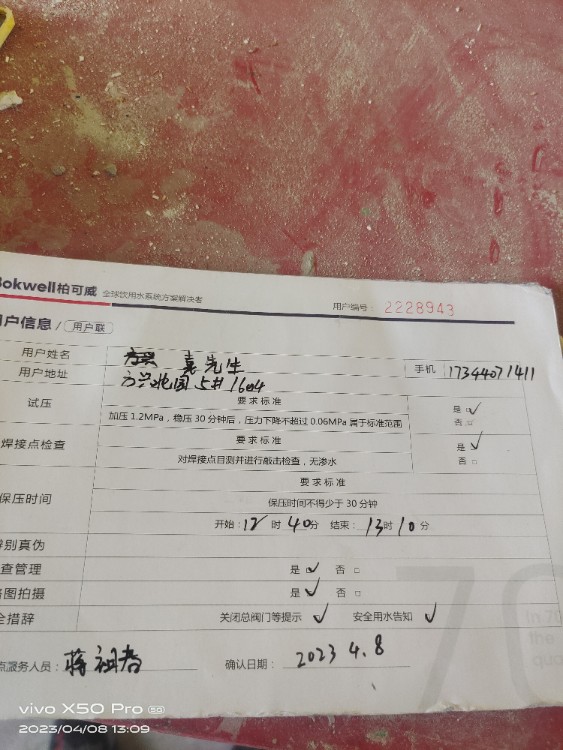 Bokwell柏可威 全球饮用水系统方案解决者 用户编号: 2228943
户信息 / 用户联
用户姓名 嘉先生 手机 17344071411
用户地址 5#1604
试压 要求标准
加压1.2MPa，稳压30分钟后，压力下降不超过0.06MPa属于标准范围 是 否
焊接点检查 要求标准
对焊接点目测并进行敲击检查，无渗水 是 否
保压时间 要求标准
保压时间不得少于30分钟
开始: 12时40分 结束: 13时10分
辨别真伪
查管理 是 否
图拍摄 是 否
全措辞 关闭总阀门等提示 安全用水告知
点服务人员: 蒋祖 确认日期: 2023 4.8
70
In 70
the
qua
vivo X50 Pro 5G
2023/04/08 13:09